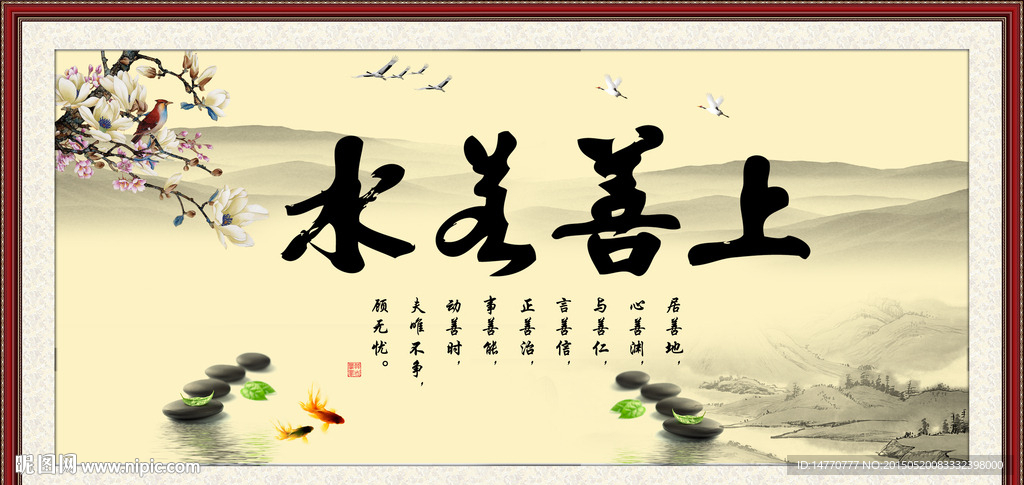 上善若水
居善地，
心善渊，
与善仁，
言善信，
正善治，
事善能，
动善时，
夫唯不争，
顾无忧。
昵图网 www.nipic.com
ID:14770777 NO:20150520083332398000